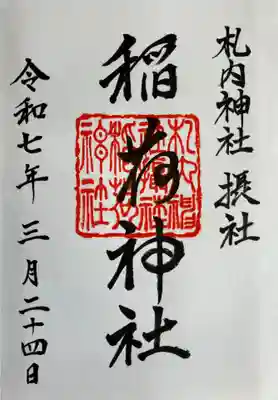 札内神社 摂社
稲荷神社
令和七年 三月二十四日